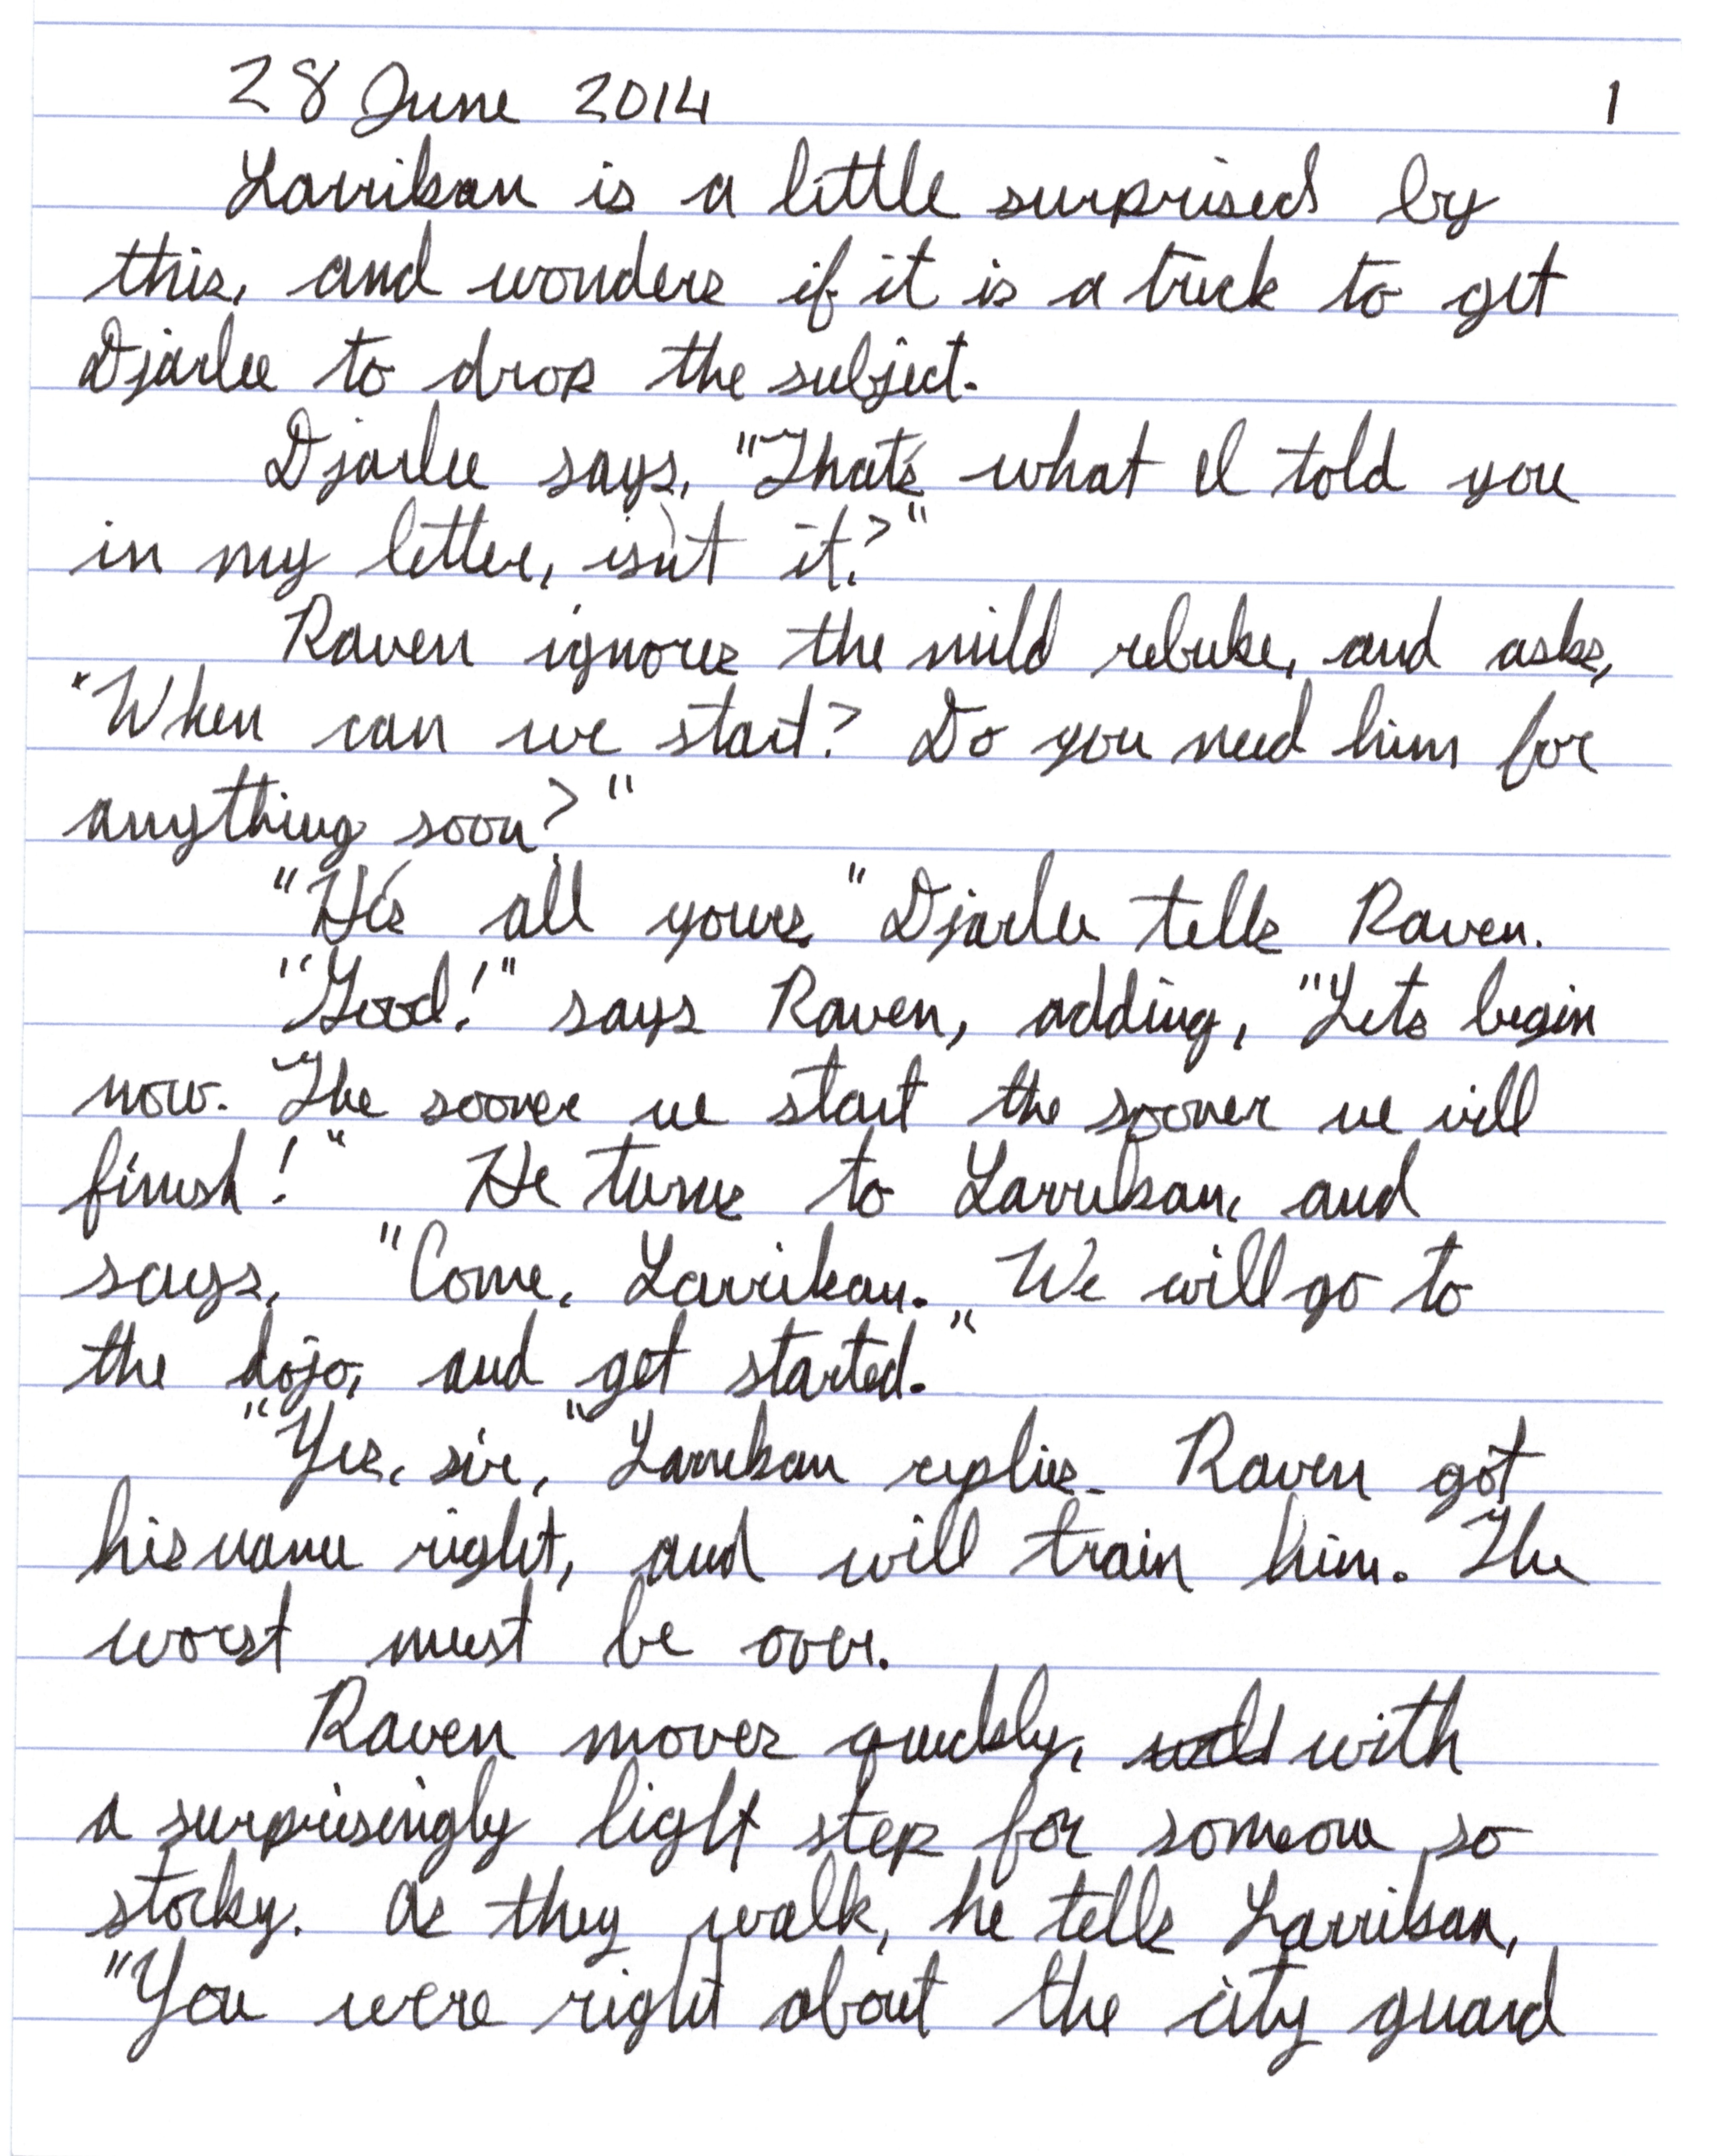 28 June 2014 1
Larrikan is a little surprised by
this, and wonders if it is a trick to get
Djarlee to drop the subject.
Djarlee says, "That's what I told you
in my letter, isn't it?"
Raven ignores the mild rebuke, and asks,
"When can we start? Do you need him for
anything soon?"
"He's all yours," Djarlee tells Raven.
"Good!" says Raven, adding, "Lets begin
now. The sooner we start the sooner we will
finish!" He turns to Larrikan, and
says, "Come, Larrikan. We will go to
the dojo, and get started."
"Yes, sir," Larrikan replies. Raven got
his name right, and will train him. The
worst must be over.
Raven moves quickly, with
a surprisingly light step for someone so
stocky. As they walk, he tells Larrikan,
"You were right about the city guard